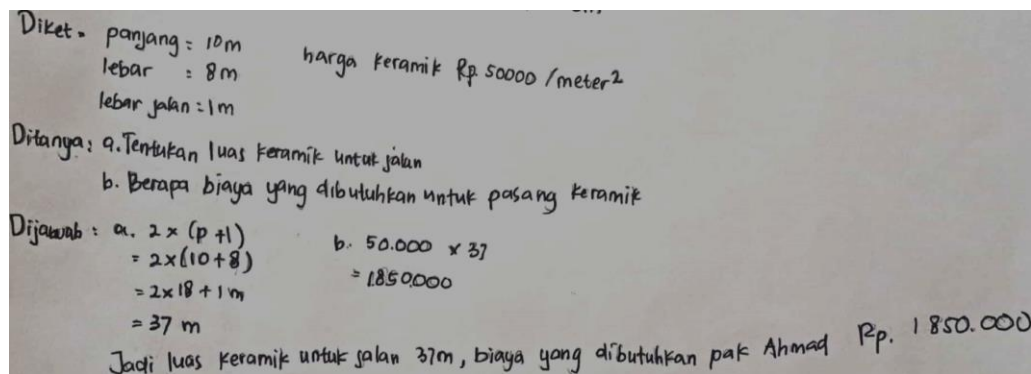 Diket. panjang = 10m
lebar : 8m
harga keramik Rp. 50000 /meter2
lebar jalan = 1m
Ditanya: a. Tentukan luas keramik untuk jalan
b. Berapa biaya yang dibutuhkan untuk pasang keramik
Dijawab : a. 2 × (p + l)
= 2×(10+8)
= 2×18 + 1 m
= 37 m
b. 50.000 × 37
= 1.850.000
Jadi luas keramik untuk jalan 37m, biaya yang dibutuhkan pak Ahmad Rp. 1 850.000